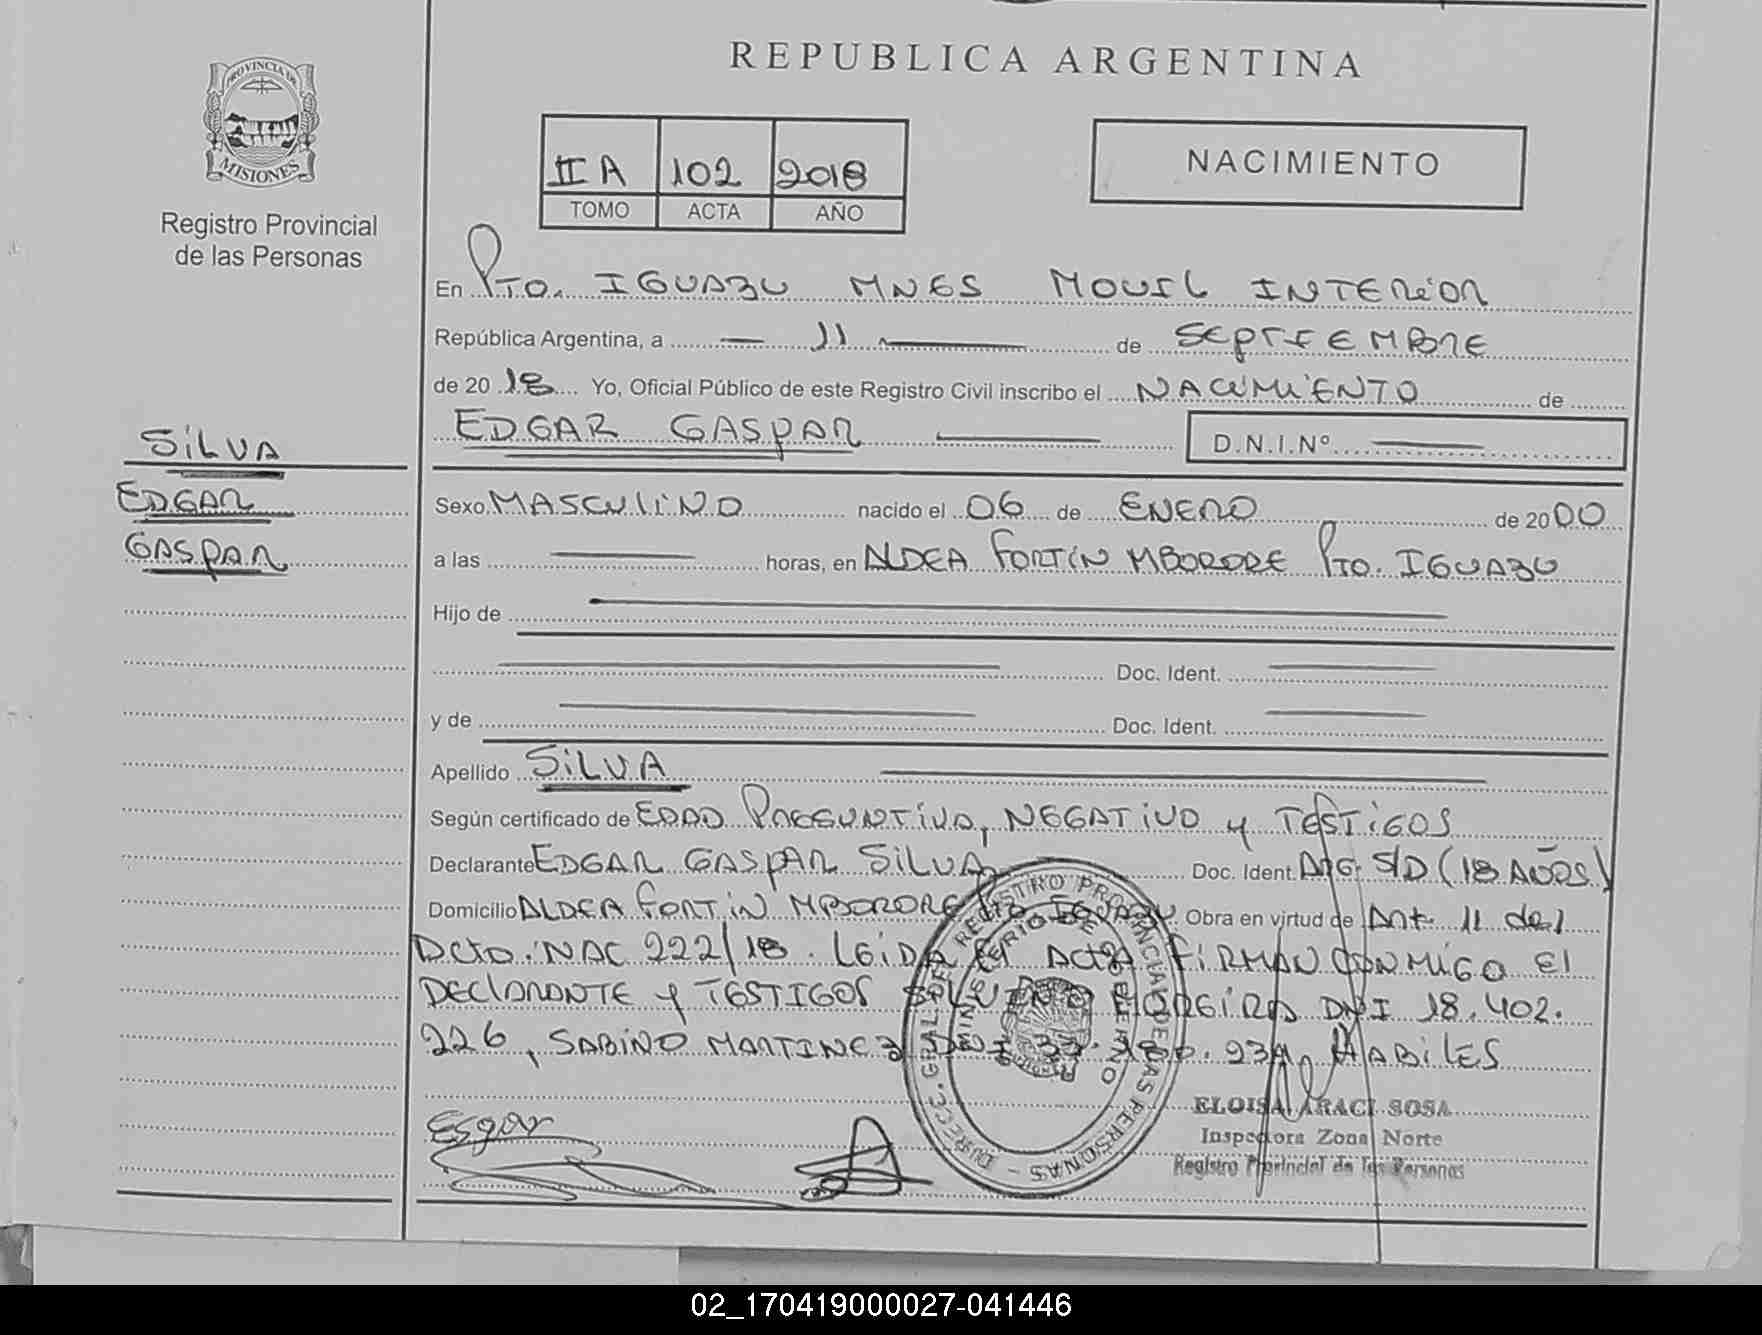 REPUBLICA ARGENTINA
PROVINCIA DE
MISIONES
Registro Provincial
de las Personas
II A 102 2018
TOMO ACTA AÑO
NACIMIENTO
En Pto. IGUAZU MNES MOVIL INTERIOR
República Argentina, a — 11 — de SEPTIEMBRE
de 20 18 Yo, Oficial Público de este Registro Civil inscribo el NACIMIENTO de
EDGAR GASPAR — D.N.I.Nº —
SILVA
EDGAR
GASPAR
Sexo MASCULINO nacido el 06 de ENERO de 20 00
a las — horas, en ALDEA FORTIN MBORORE Pto. IGUAZU
Hijo de —
— Doc. Ident. —
y de — Doc. Ident. —
Apellido SILVA —
Según certificado de EDAD PRESUNTIVA, NEGATIVO y TESTIGOS
Declarante EDGAR GASPAR SILVA Doc. Ident. ARG. S/D (18 AÑOS)
Domicilio ALDEA FORTIN MBORORE Pto IGUAZU Obra en virtud de Art. 11 del
Dcto. NAC 222/18. LEIDA el ACTA FIRMAN CONMIGO El
DEClARANTE y TESTIGOS SILVINO MOREIRA DNI 18.402.
226, SABINO MARTINEZ DNI HABILES
DIRECC. GRAL. DEL REGISTRO PROVINCIAL DE LAS PERSONAS
MINISTERIO DE GOBIERNO
ELOISA ARACI SOSA
Inspectora Zona Norte
Registro Provincial de las Personas
Esgar
02_170419000027-041446